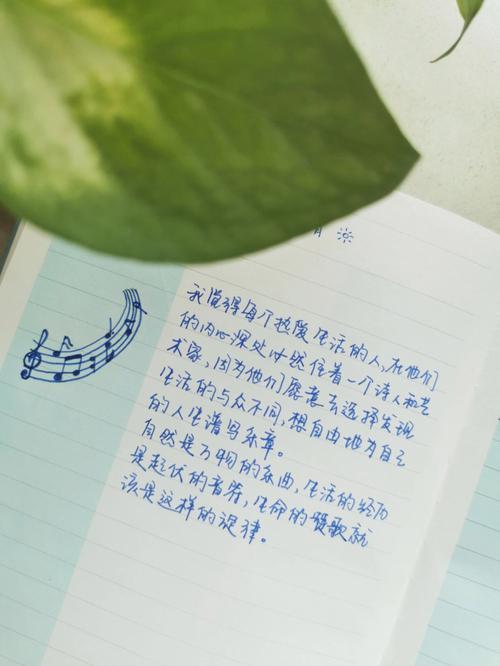 我觉得每个热爱生活的人，在他们
的内心深处必然住着一个诗人和艺
术家，因为他们愿意去选择发现
生活的与众不同，想自由地为自己
的人生谱写乐章。
自然是万物的乐曲，生活的经历
是起伏的音符，生命的赞歌就
该是这样的旋律。